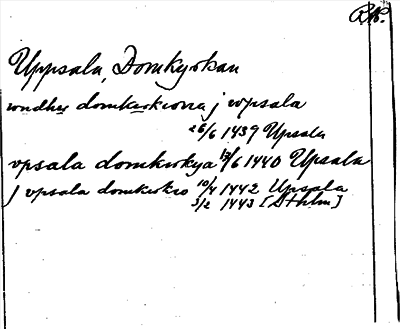 RA.
Uppsala, Domkyrkan
wndher domkirkionne j wpsala
26/6 1439 Upsala
vpsala domkirkya 13/6 1440 Upsala
j vpsala domkirkio 10/4 1442 Upsala
3/2 1443 [Sthlm]